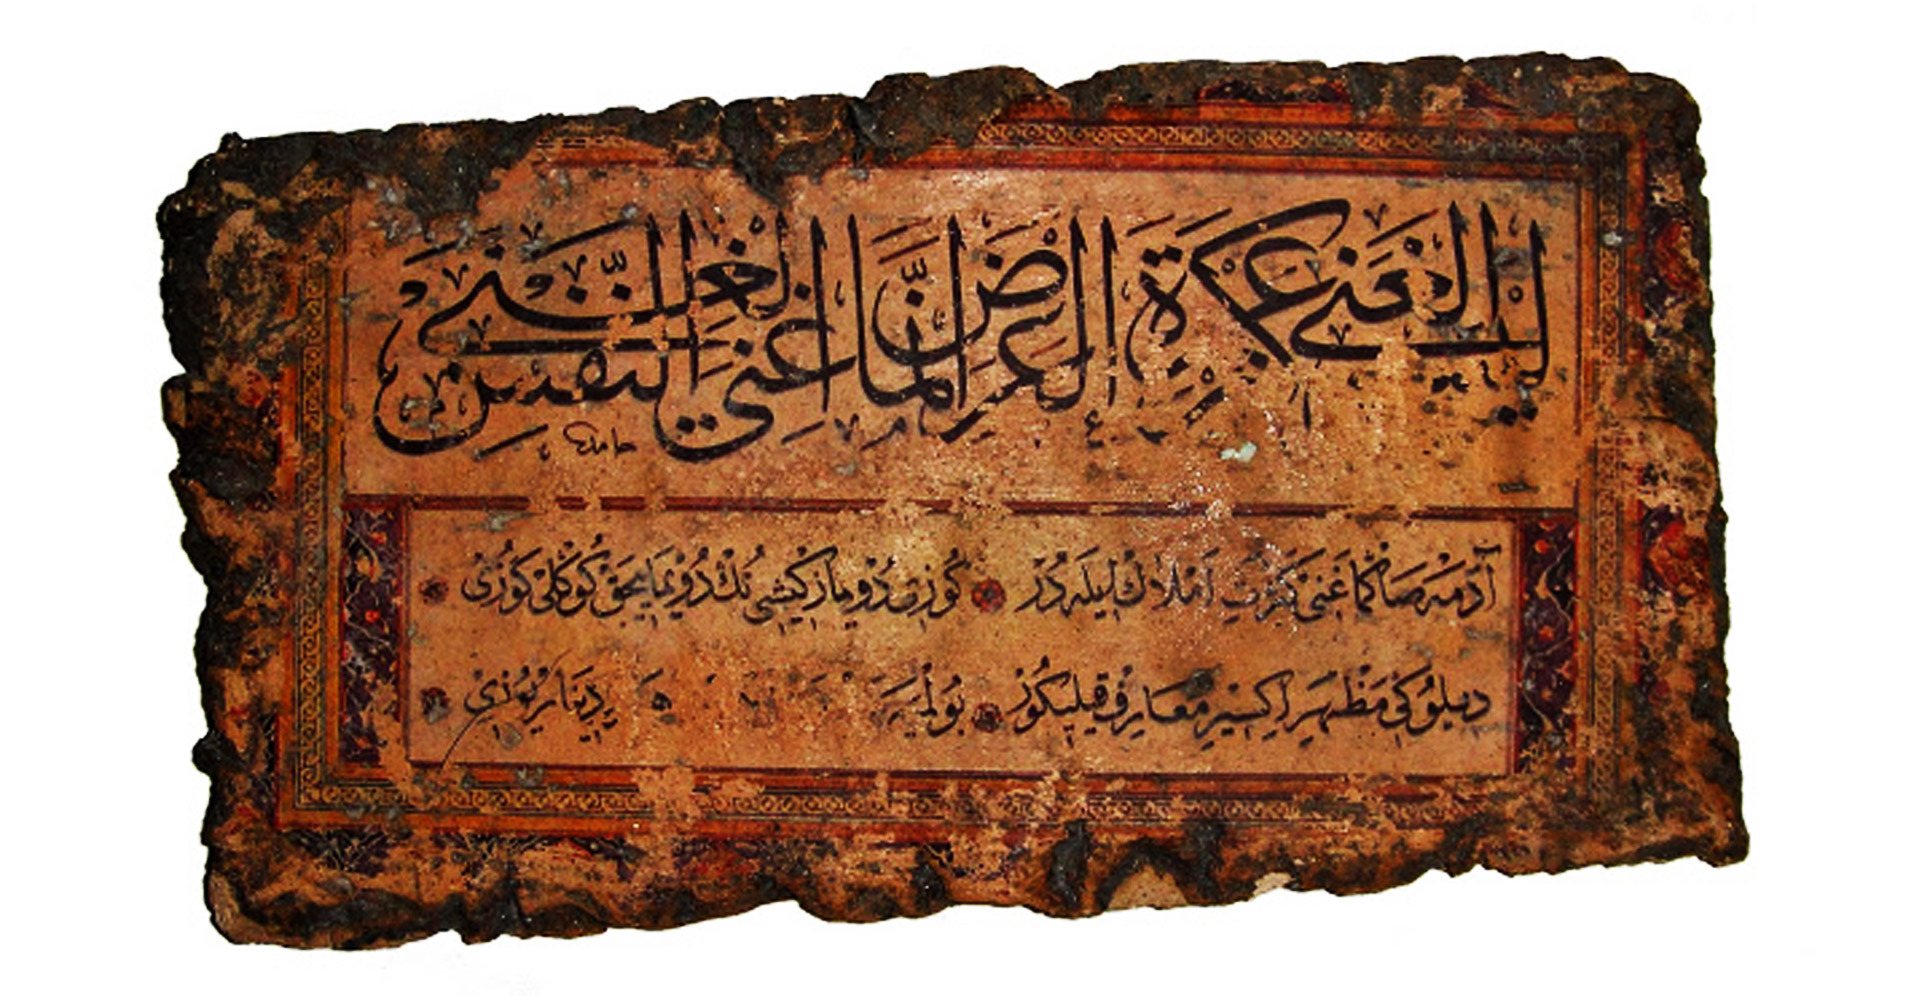 ليس الغنى عن كثرة العرض انما الغنى غنى النفس
حامد
آدمه صانما غنى كثرت املاك ايله در كوزى دويماز كيشى نك دويماينجق كوكلى كوزى
مظهر اكسير معارف قيليكوز بولميه دينار يوزى